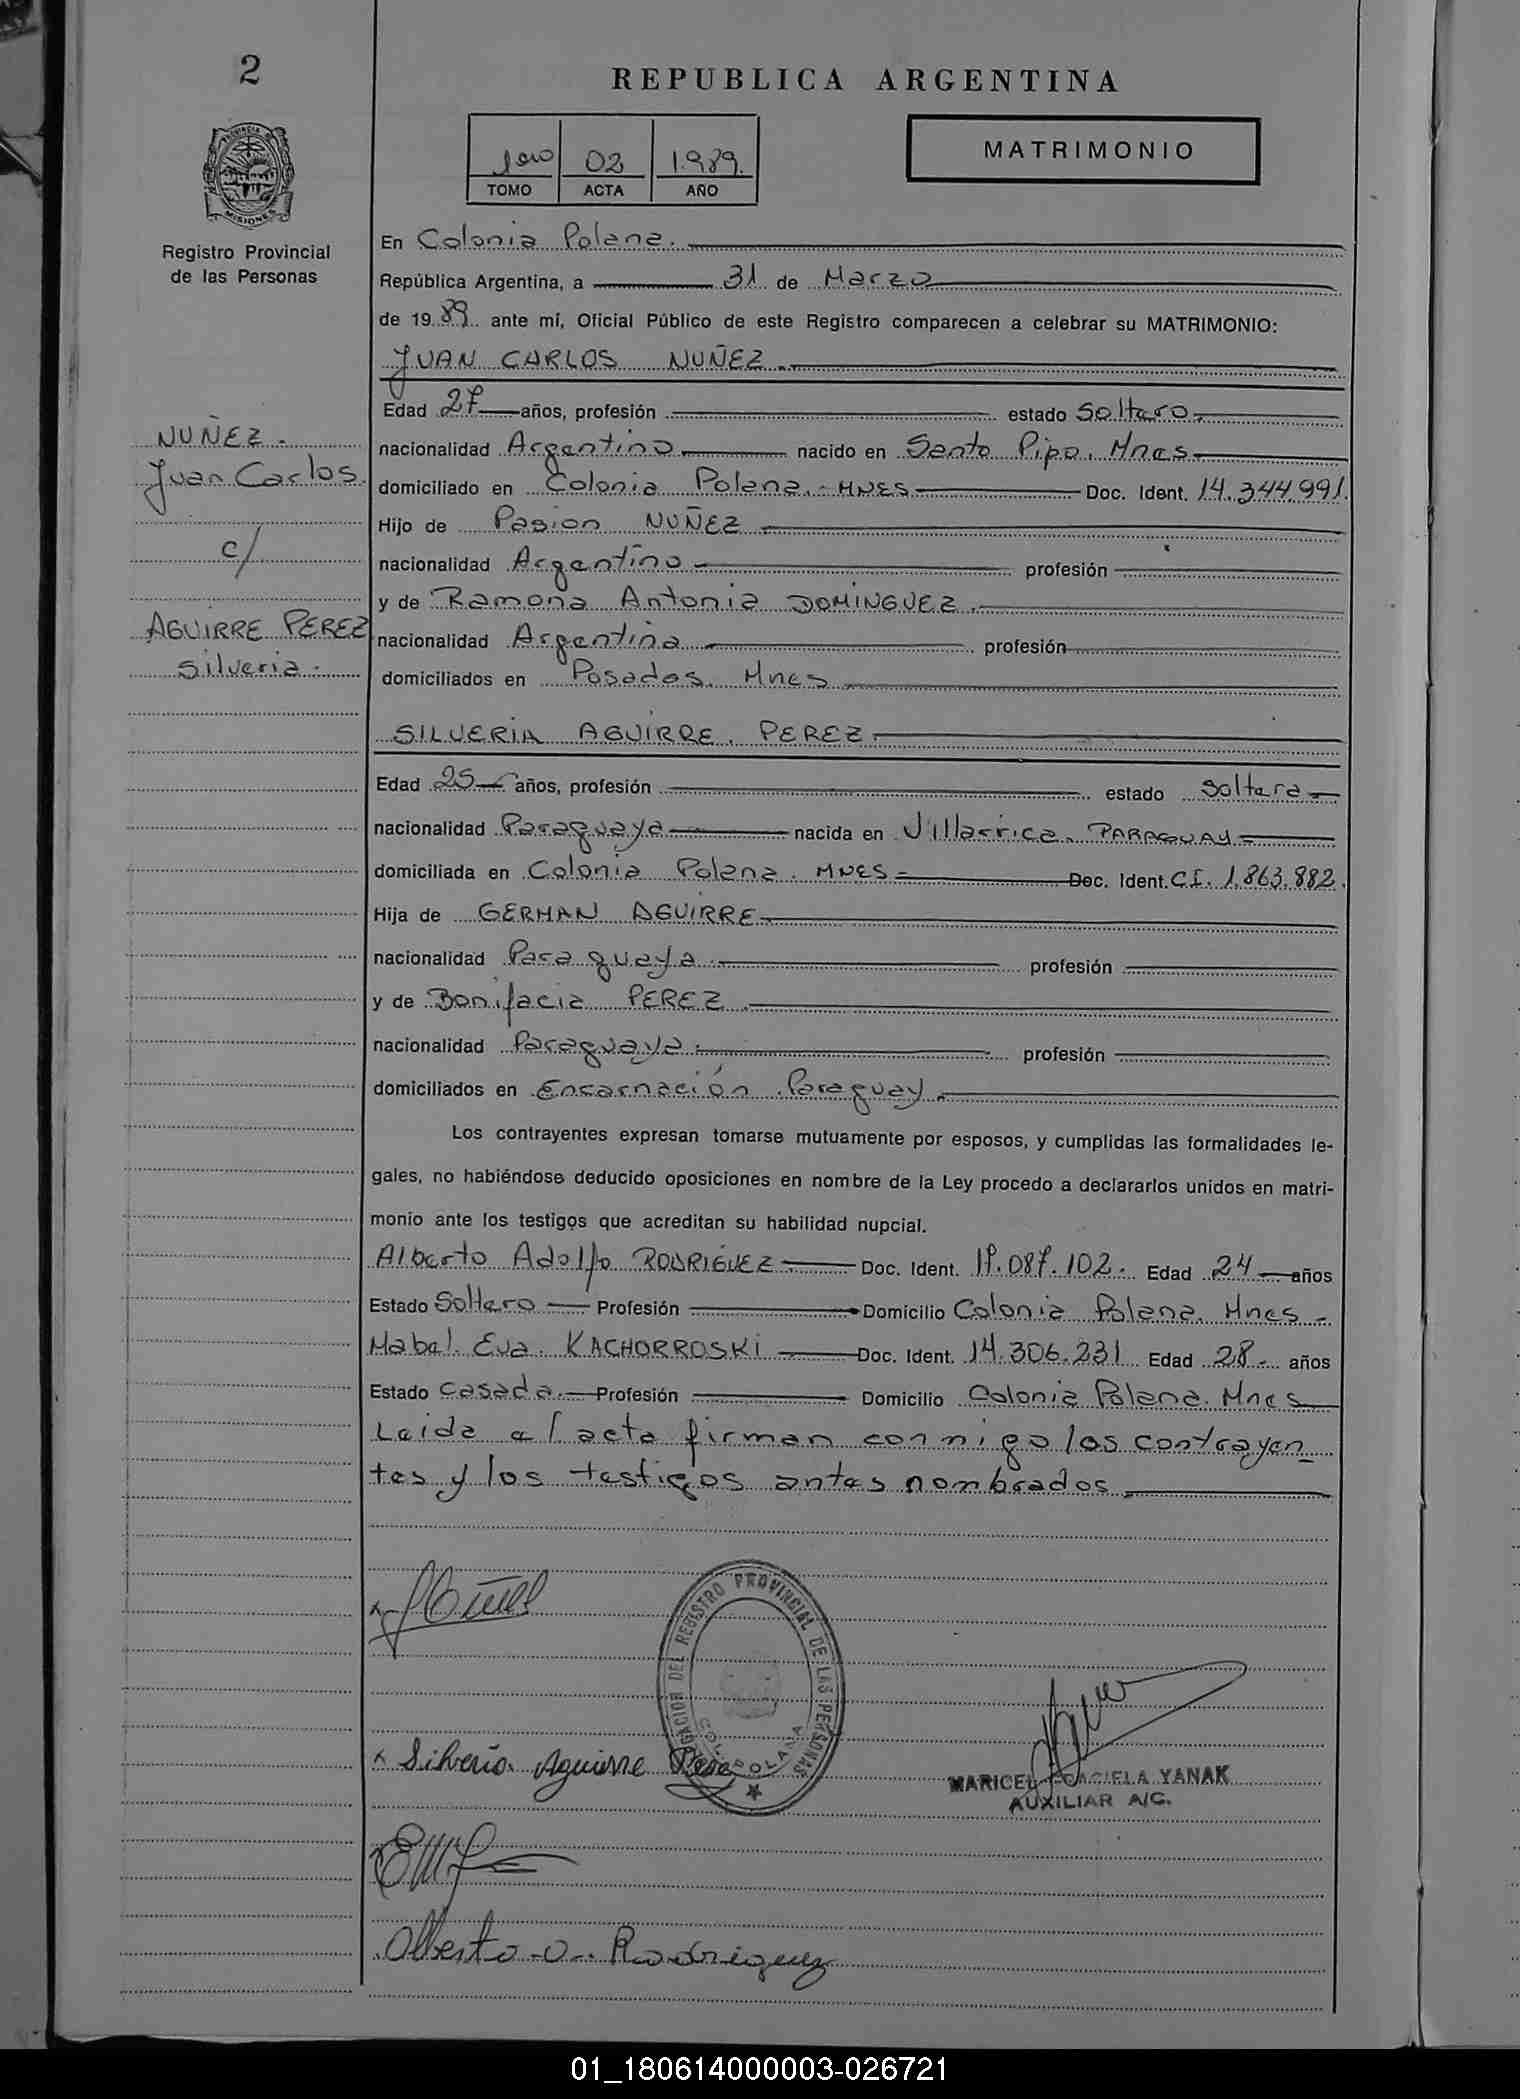 2
REPUBLICA ARGENTINA
1ero 02 1.989.
TOMO ACTA AÑO
MATRIMONIO
PROVINCIA DE
MISIONES
Registro Provincial
de las Personas
En Colonia Polana.
República Argentina, a 31 de Marzo
de 1989 ante mí, Oficial Público de este Registro comparecen a celebrar su MATRIMONIO:
JUAN CARLOS NUÑEZ.
Edad 27 años, profesión estado Soltero.
NUÑEZ.
nacionalidad Argentino nacido en Santo Pipo. Mnes
Juan Carlos.
domiciliado en Colonia Polana.-MNES Doc. Ident. 14.344.991.
Hijo de Pasion NUÑEZ
c/
nacionalidad Argentino profesión
y de Ramona Antonia DOMINGUEZ.
AGUIRRE PEREZ
nacionalidad Argentina profesión
Silveria.
domiciliados en Posadas. Mnes
SILVERIA AGUIRRE. PEREZ.
Edad 25 años, profesión estado Soltera
nacionalidad Paraguaya nacida en Villarrica. PARAGUAY
domiciliada en Colonia Polana. MNES Doc. Ident. C.I. 1.863.882.
Hija de GERMAN AGUIRRE
nacionalidad Paraguaya profesión
y de Bonifacia PEREZ
nacionalidad Paraguaya. profesión
domiciliados en Encarnación. Paraguay.
Los contrayentes expresan tomarse mutuamente por esposos, y cumplidas las formalidades le-
gales, no habiéndose deducido oposiciones en nombre de la Ley procedo a declararlos unidos en matri-
monio ante los testigos que acreditan su habilidad nupcial.
Alberto Adolfo RODRIGUEZ Doc. Ident. 17.087.102. Edad 24 años
Estado Soltero Profesión Domicilio Colonia Polana. Mnes
Mabel. Eva. KACHORROSKI Doc. Ident. 14.306.231 Edad 28. años
Estado casada. Profesión Domicilio Colonia Polana. Mnes
Leida el acta firman conmigo los contrayen-
tes y los testigos antes nombrados.
DEL REGISTRO PROVINCIAL DE LAS PERSONAS
COL. POLANA
Silveria. Aguirre Perez
MARICEL GRACIELA YANAK
AUXILIAR A/C.
Alberto A. Rodriguez
01_180614000003-026721